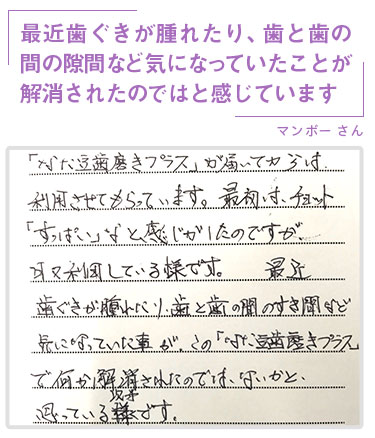 最近歯ぐきが腫れたり、歯と歯の
間の隙間など気になっていたことが
解消されたのではと感じています
マンボー さん
「なた豆歯磨きプラス」が届いてからは、
利用させてもらっています。最初は、チョット
「すっぱい」なと感じがしたのですが、
利用している様です。 最近
歯ぐきが腫れたり、歯と歯の間のすき間など
気になっていた事が、この「なた豆歯磨きプラス」
で何か解消されたのでは、ないかと、
思っている様です。